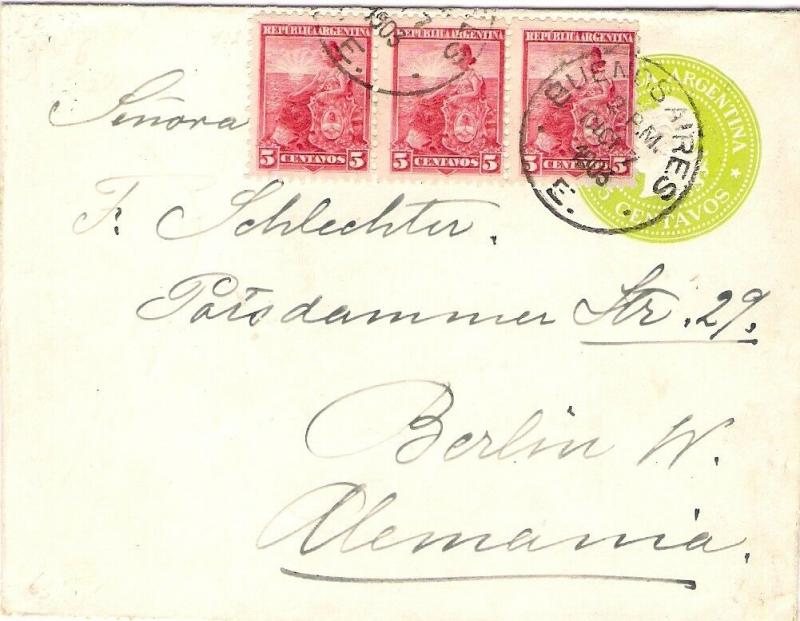 REPUBLICA ARGENTINA REPUBLICA ARGENTINA REPUBLICA ARGENTINA
5 CENTAVOS 5 5 CENTAVOS 5 5 CENTAVOS
1903
E.
S
ARGENTINA
5 CENTAVOS
BUENOS AIRES
2 P.M.
OCT 7
1903
E.
Señora
Fr. Schlechter.
Potsdammer Str. 29.
Berlin W.
Alemania.